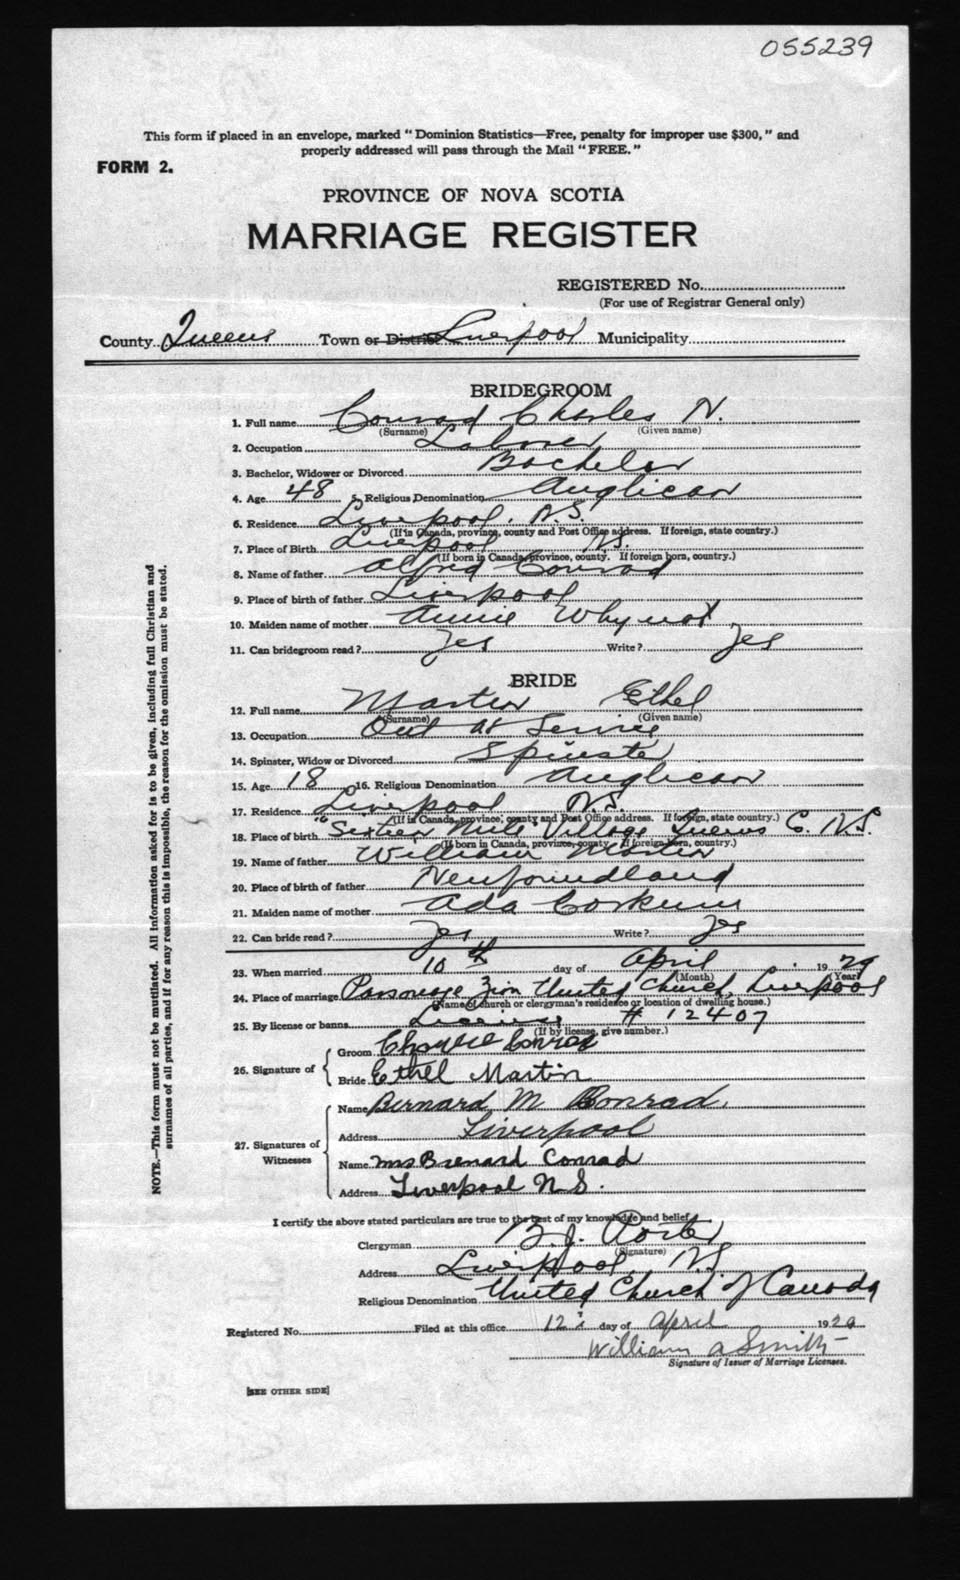 055239
This form if placed in an envelope, marked "Dominion Statistics—Free, penalty for improper use $300," and
properly addressed will pass through the Mail "FREE."
FORM 2.
PROVINCE OF NOVA SCOTIA
MARRIAGE REGISTER
REGISTERED No.
(For use of Registrar General only)
County Queens Town or District Liverpool Municipality
BRIDEGROOM
1. Full name Conrad Charles N.
(Surname) (Given name)
2. Occupation Laborer
3. Bachelor, Widower or Divorced Bachelor
4. Age 48 5. Religious Denomination Anglican
6. Residence Liverpool. N.S.
(If in Canada, province, county and Post Office address. If foreign, state country.)
7. Place of Birth Liverpool N.S.
(If born in Canada, province, county. If foreign born, country.)
8. Name of father Alfred Conrad
9. Place of birth of father Liverpool
10. Maiden name of mother Annie Whynot
11. Can bridegroom read? Yes Write? Yes
BRIDE
12. Full name Martin Ethel
(Surname) (Given name)
13. Occupation Out at Service
14. Spinster, Widow or Divorced Spinster
15. Age 18 16. Religious Denomination Anglican
17. Residence Liverpool N.S.
(If in Canada, province, county and Post Office address. If foreign, state country.)
18. Place of birth "Sixteen Mile" Village Queens Co. N.S.
(If born in Canada, province, county. If foreign born, country.)
19. Name of father William Martin
20. Place of birth of father Newfoundland
21. Maiden name of mother Ada Corkum
22. Can bride read? Yes Write? Yes
23. When married 10th day of April 1929
(Month) (Year)
24. Place of marriage Parsonage Zion United Church, Liverpool
(Name of church or clergyman's residence or location of dwelling house.)
25. By license or banns License # 12407
(If by license, give number.)
26. Signature of
Groom Conrad
Bride Ethel Martin
27. Signatures of Witnesses
Name Bernard M Conrad.
Address Liverpool
Name Mrs Brenard Conrad
Address Liverpool N.S.
I certify the above stated particulars are true to the best of my knowledge and belief.
Clergyman B. J. Porter
(Signature)
Address Liverpool, N.S.
Religious Denomination United Church of Canada
Registered No. Filed at this office 12 day of April 1929
William A Smith
Signature of Issuer of Marriage Licenses.
[SEE OTHER SIDE]
NOTE.—This form must not be mutilated. All information asked for is to be given, including full Christian and
surnames of all parties, and if for any reason this is impossible, the reason for the omission must be stated.